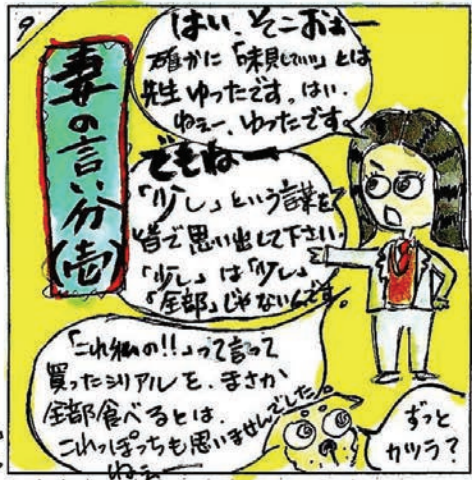 9
妻の言い分(壱)
はい、そこおぉー
確かに「味見していい」とは
先生ゆったです。はい。
ねぇー、ゆったです
でもねー
「少し」という言葉を
皆で思い出して下さい。
「少し」は「少し」
「全部」じゃないんです。
「これ私の!!」って言って
買ったシリアルを、まさか
全部食べるとは、
これっぽっちも思いませんでした。
ねぇー
ずっと
カツラ?